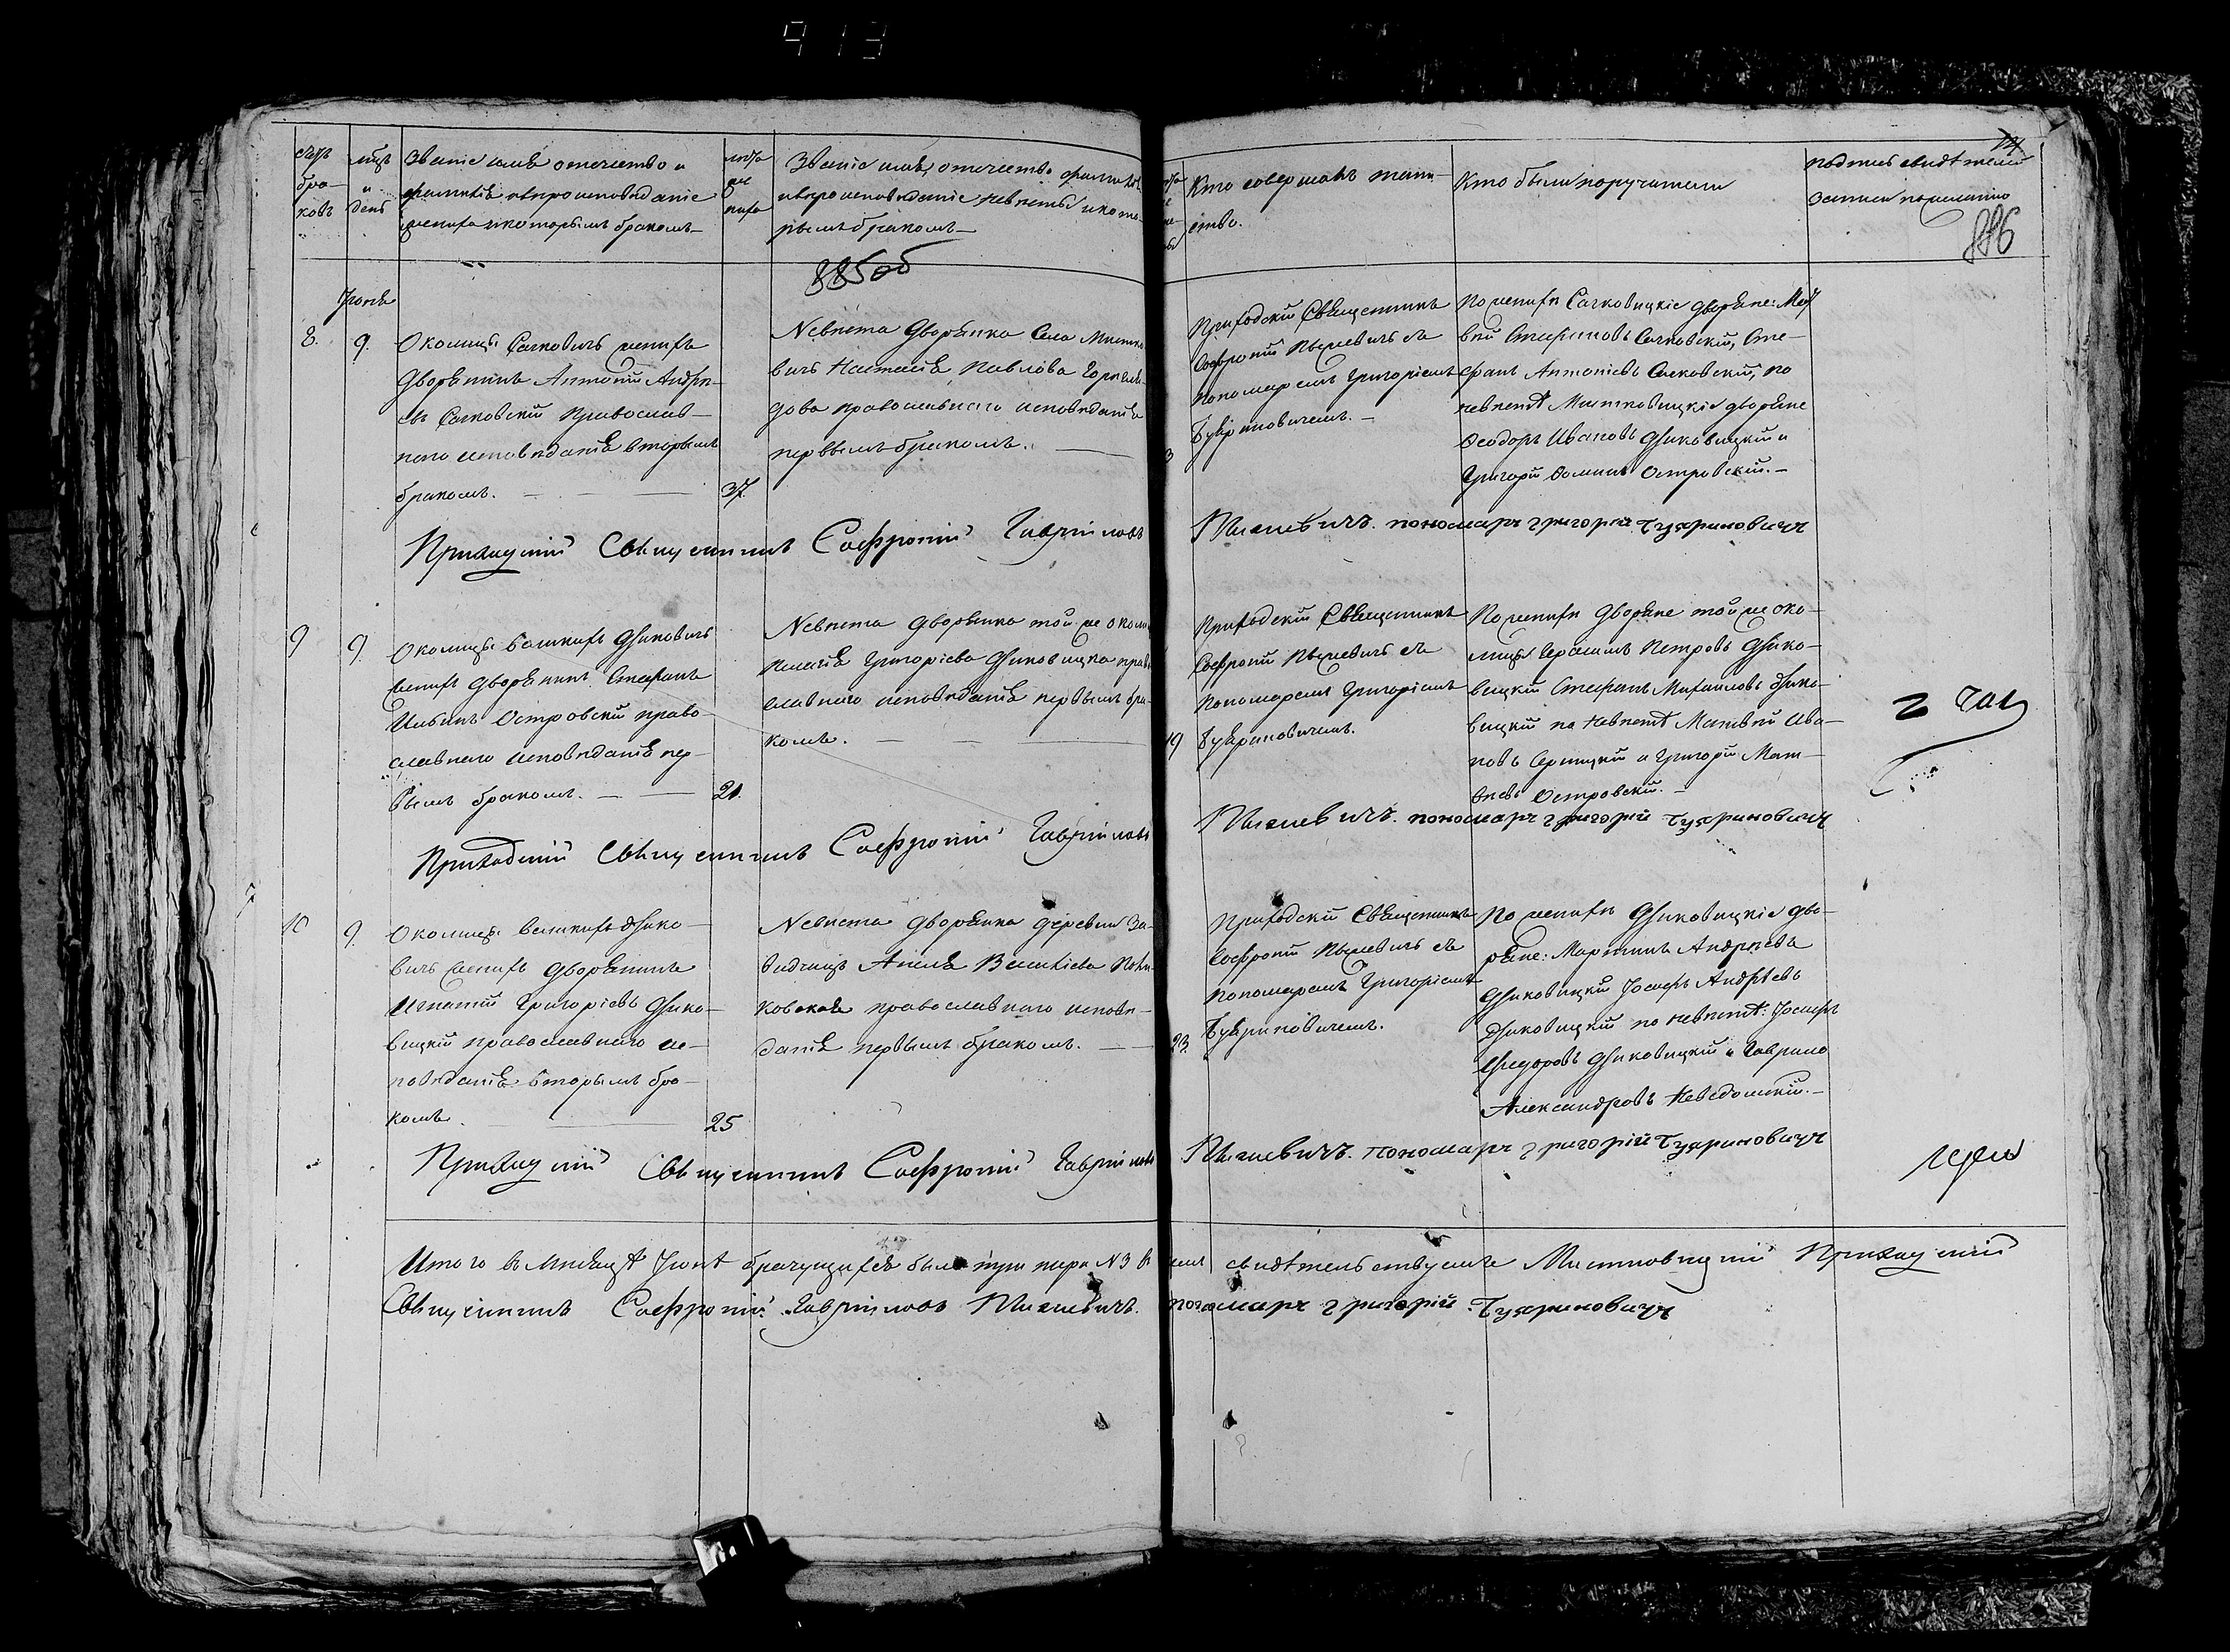 913
счетъ
бра-
ковъ
мцъ
и
день
Званіе имя отечество и
фамилія вѣроисповѣданіе
жениха и которымъ бракомъ
лѣта
же
ниха
Званіе имя, отечество фамилія
и вѣроисповѣданіе невѣсты и кото-
рымъ бракомъ
885об
Кто совершалъ таин-
ство.
Кто были поручители
подпись свидѣтелей
записи по желанію
886
Іюнь
8.
9.
Околицы Сачковичъ женихъ
Дворянинъ Антоній Андре-
евъ Сачковскій Православ-
наго исповѣданія вторымъ
бракомъ.
37.
Невѣста Дворянка Села Мистко-
вичъ Настасія Павлова
православнаго исповѣданія
первымъ бракомъ.
Приходскій Священникъ
Софроній Пыжевичъ съ
пономаремъ Григоріемъ
Бухриновичемъ.
По женихѣ Сачковицкіе дворяне:
Стефановъ Сачковскій, Сте-
фанъ Антоніевъ Сачковскій, по
невѣстѣ Мистковицкіе дворяне
Ѳеодоръ Ивановъ Дзиковицкій и
Григорій Островскій.
Приходскій Священникъ Софроній Гавріиловъ
Пыжевичъ. пономарь григорій Бухриновичъ
9
9.
Околицы Великихъ Дзиковичъ
женихъ Дворянинъ Стефанъ
Ильинъ Островскій право-
славнаго исповѣданія пер-
вымъ бракомъ.
21.
Невѣста Дворянка той же околи
Пелагія Григоріева Дзиковицка право
славнаго исповѣданія первымъ бра-
комъ.
19
Приходскій Священникъ
Софроній Пыжевичъ съ
пономаремъ Григоріемъ
Бухриновичемъ.
По женихѣ Дворяне той же око-
лицы Герасимъ Петровъ Дзико-
вицкій Стефанъ Михаиловъ Дзико-
вицкій по невѣстѣ Матвѣй Ива-
новъ и Григорій Мат-
вѣевъ Островскій.
Приходскій Священникъ Софроній Гавріиловъ
Пыжевичъ. пономарь григорій Бухриновичъ
10
9.
Околицы Великихъ Дзико-
вичъ женихъ Дворянинъ
Игнатій Григоріевъ Дзико-
вицкій православнаго ис-
повѣданія вторымъ бра-
комъ.
25
Невѣста Дворянка деревни За-
видчицъ Василіева
православнаго исповѣ-
данія первымъ бракомъ.
23.
Приходскій Священникъ
Софроній Пыжевичъ съ
пономаремъ Григоріемъ
Бухриновичемъ.
По женихѣ Дзиковицкіе дво-
ряне: Мартинъ Андреевъ
Дзиковицкій Іосифъ Андрѣевъ
Дзиковицкій по невѣстѣ: Іосифъ
Федоровъ Дзиковицкій и Гаврило
Александровъ Неведомскій.
Приходскій Священникъ Софроній Гавріиловъ
Пыжевичъ. пономарь григорій Бухриновичъ
Итого въ мѣсяцѣ Іюнѣ брачущихся было три пары №3 свидѣтельствуемъ Мистковицкій Приходскій
Священникъ Софроній Гавріиловъ Пыжевичъ. пономарь григорій Бухриновичъ